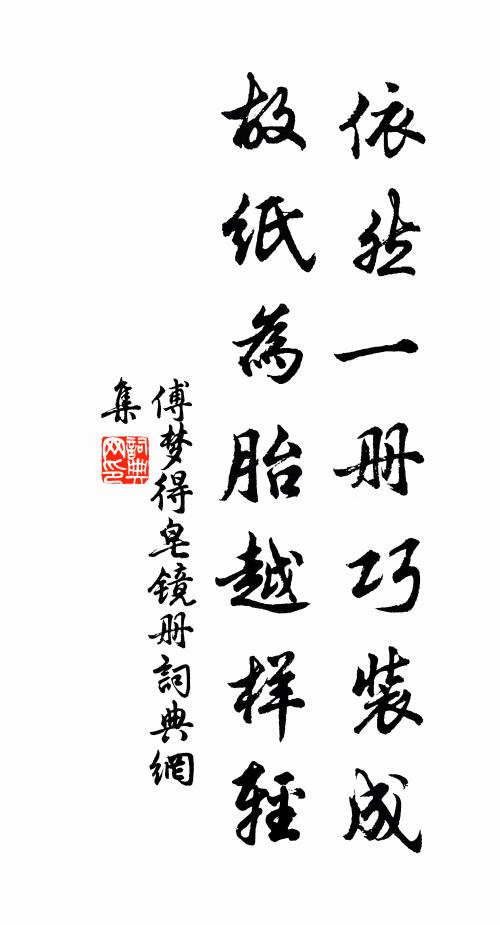 依然一册巧装成
故纸為胎越样輕
傅梦得皂鏡册詞典網
集
詞典
网印